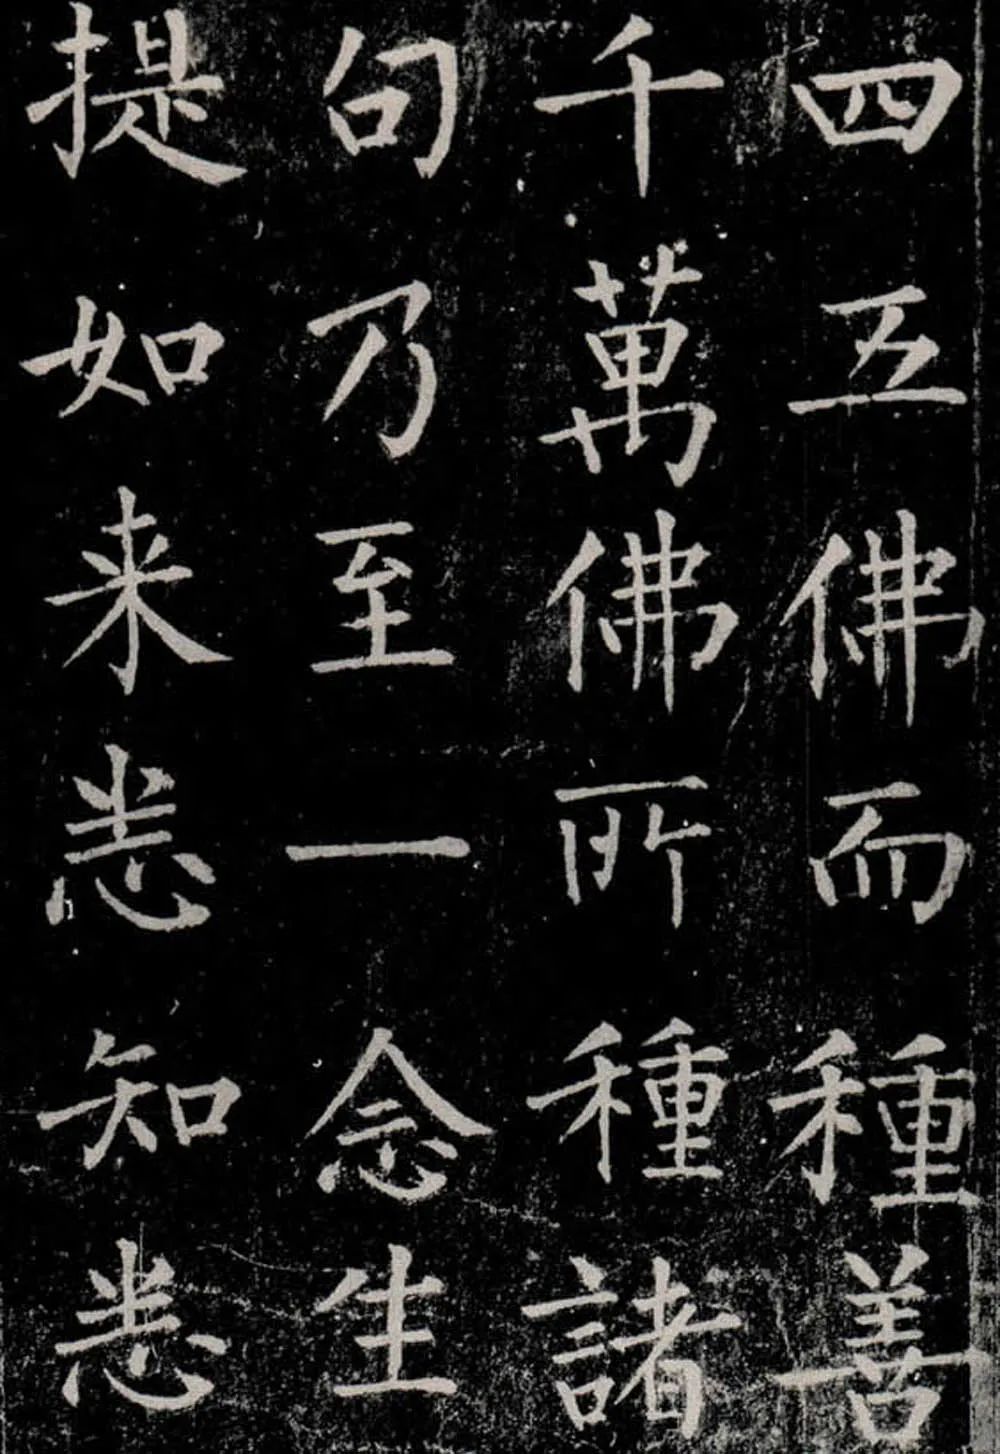 四五佛而種善
千萬佛所種諸
句乃至一念生
提如来悉知悉